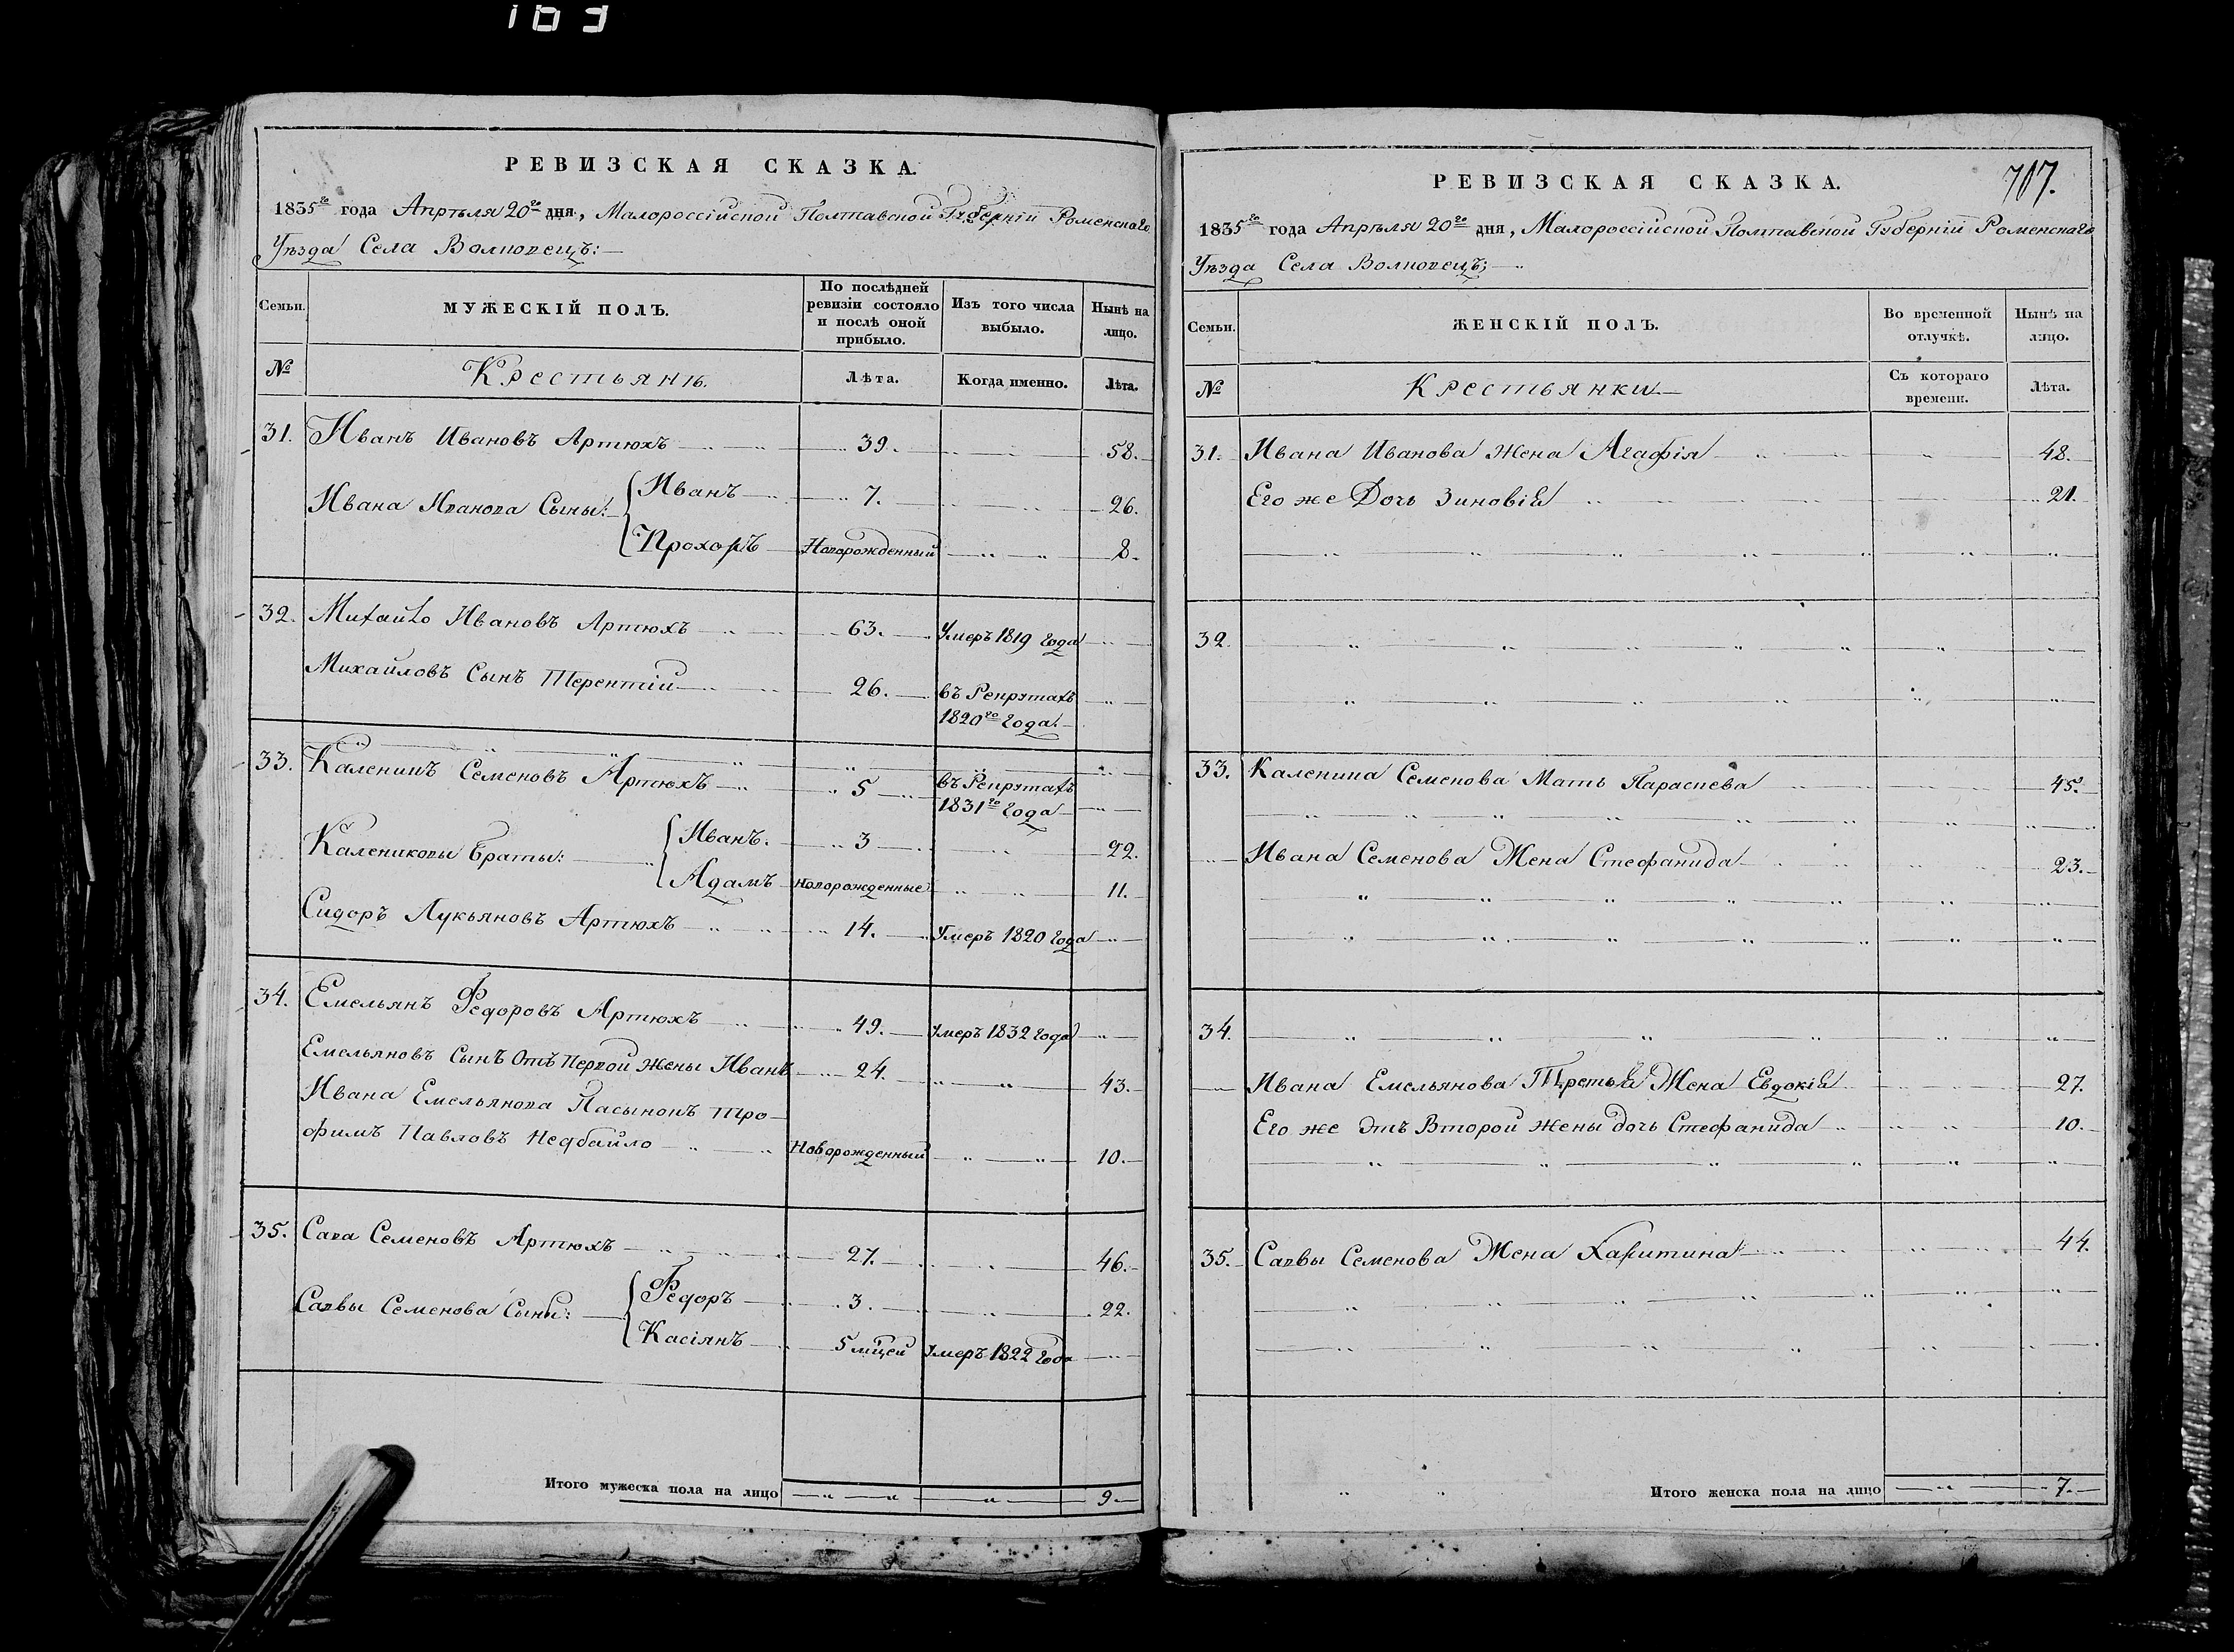 163
РЕВИЗСКАЯ СКАЗКА.
1835го года Апрѣля 20го дня, Малороссійской Полтавской Губерніи Роменскаго
Уѣзда Села Волковецъ:
Семьи. МУЖЕСКІЙ ПОЛЪ. По послѣдней ревизіи состояло и послѣ оной прибыло. Изъ того числа выбыло. Нынѣ на лицо.
№ Крестьянъ. Лѣта. Когда именно. Лѣта.
31. Иванъ Ивановъ Артюхъ 39. 58.
Ивана Иванова Сыны: Иванъ 7. 26.
Прохоръ Новорожденный 8.
32. Михайло Ивановъ Артюхъ 63. Умеръ 1819 Года
Михайловъ Сынъ Терентій 26. въ Рекрутахъ
1820го Года.
33. Каленикъ Семеновъ Артюхъ 5 въ Рекрутахъ
1831го Года
Калениковы Браты: Иванъ. 3 22.
Адамъ Новорожденные 11.
Сидоръ Лукьяновъ Артюхъ 14. Умеръ 1820 Года
34. Емельянъ Федоровъ Артюхъ 49. Умеръ 1832 Года
Емельяновъ Сынъ Отъ Первой Жены Иванъ 24. 43.
Ивана Емельянова Пасынокъ Тро-
фимъ Павловъ Недбайло Новорожденный 10.
35. Сава Семеновъ Артюхъ 27. 46.
Саввы Семенова Сыны: Федоръ 3. 22.
Касіянъ 5 мцей Умеръ 1822 Года
Итого мужеска пола на лицо 9.
РЕВИЗСКАЯ СКАЗКА. 717.
1835го года Апрѣля 20го дня, Малороссійской Полтавской Губерніи Роменскаго
Уѣзда Села Волковецъ;
Семьи. ЖЕНСКІЙ ПОЛЪ. Во временной отлучкѣ. Нынѣ на лицо.
№ Крестьянки Съ котораго времени. Лѣта.
31. Ивана Иванова Жена Агафія 48.
Его же Дочь Зиновія 21.
32.
33. Каленика Семенова Мать Параскева 45.
Ивана Семенова Жена Стефанида 23.
34.
Ивана Емельянова Третья Жена Евдокія 27.
Его же Отъ Второй Жены дочь Стефанида 10.
35. Саввы Семенова Жена Харитина 44.
Итого женска пола на лицо 7.